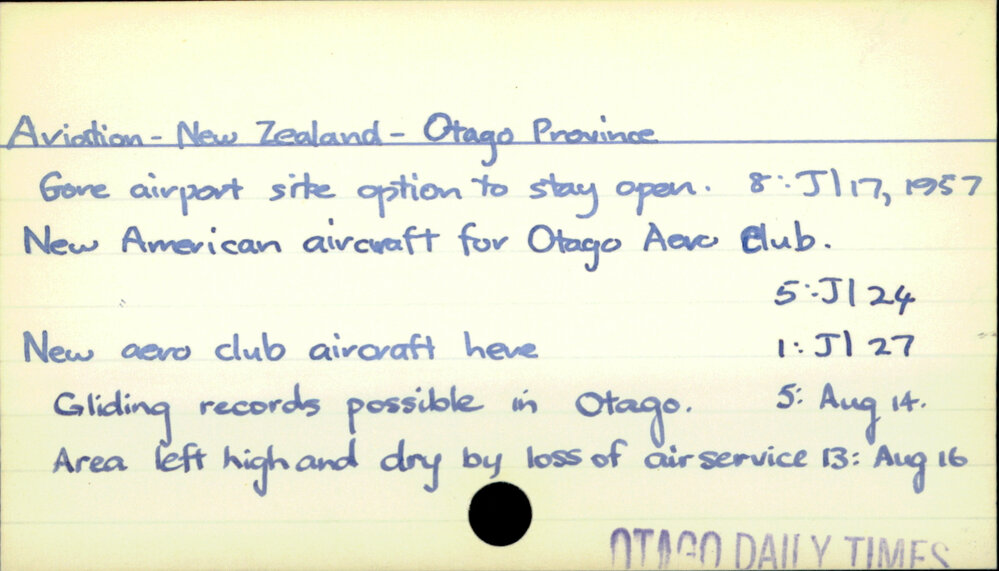 Aviation - New Zealand - Otago Province
Gore airport site option to stay open. 8: Jl 17, 1957
New American aircraft for Otago Aero Club.
5: Jl 24
New aero club aircraft here 1: Jl 27
Gliding records possible in Otago. 5: Aug 14.
Area left high and dry by loss of air service 13: Aug 16
OTAGO DAILY TIMES